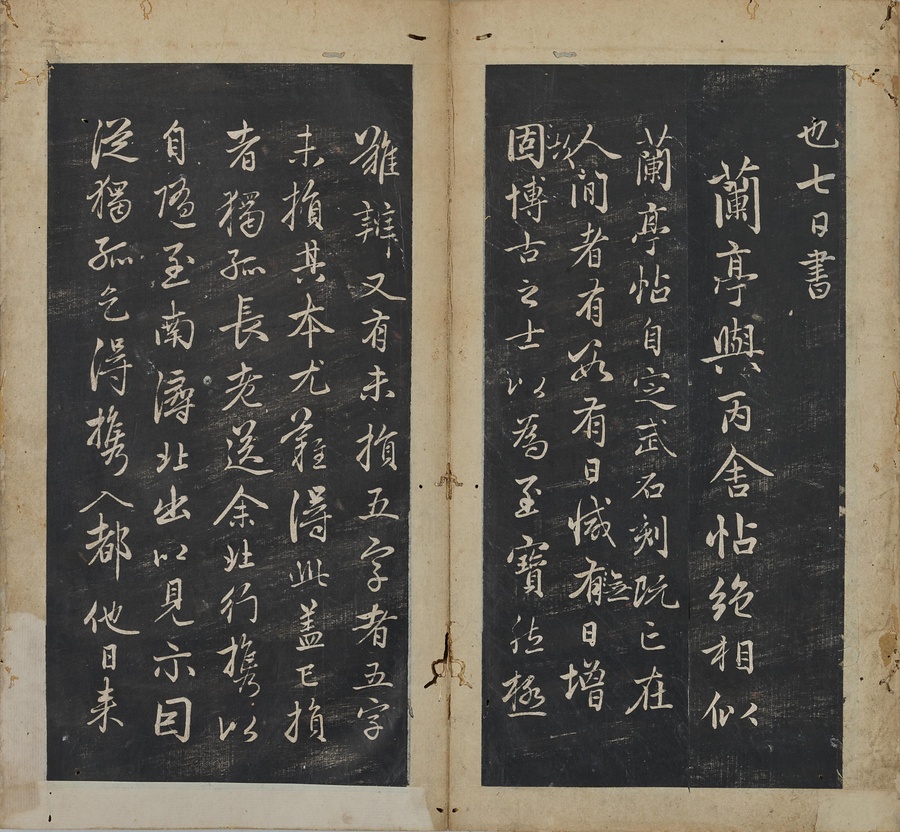 也七日書
蘭亭與丙舍帖絶相似
蘭亭帖自定武石刻既亡在
人間者有數有日減無日增故
固博古之士以為至寶然極
難辨又有未損五字者五字
未損其本尤難得此蓋已損
者獨孤長老送余北行攜以
自隨至南潯北出以見示因
從獨孤乞得攜入都他日來